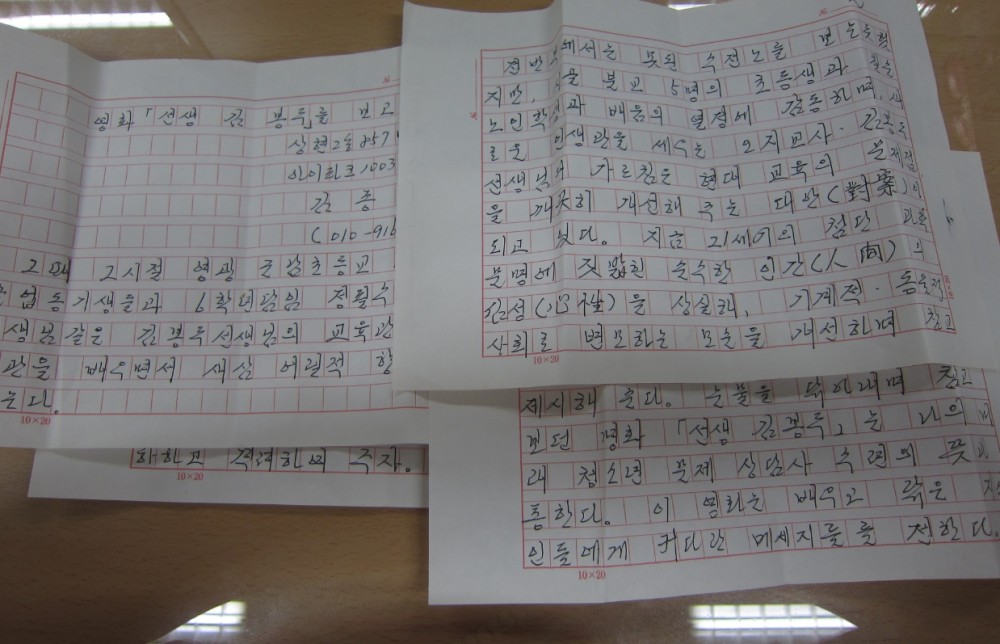 영화「선생 김 봉두」를 보고
상현2동 857
아이파크 1003
김 종
(010-916
그때 그시절 영광 군남초등교
업동기생들과 6학년담임 정월수
생님같은 김봉두선생님의 교육관
관을 배우면서 새삼 어렸적
는다.
10×20
화하고 격려하여 주자.
10×20
전반부에서는 못된 수전노를 보는듯했
지만, 분교 5명의 초등생과
노인학생과 배움의 열정에 감동하며,
로운 인생관을 세우는 오지교사·김봉두
선생님의 가르침은 현대 교육의 문제점
을 개선해 주는 대안(對案)이
되고 있다. 지금 21세기의 첨단 과학
문명에 짓밟힌 순수한 인간(人間)의
심성(心性)을 상실한, 기계적·
사회로 변모하는 모순을 개선하며
10×20
제시해 준다. 눈물을 닦아내며
보던 영화「선생 김봉두」는 나의
래 청소년 문제 상담사 수련의 뜻
통한다. 이 영화는 배우고 닮은
인들에게 커다란 메세지를 전한다.
10×20